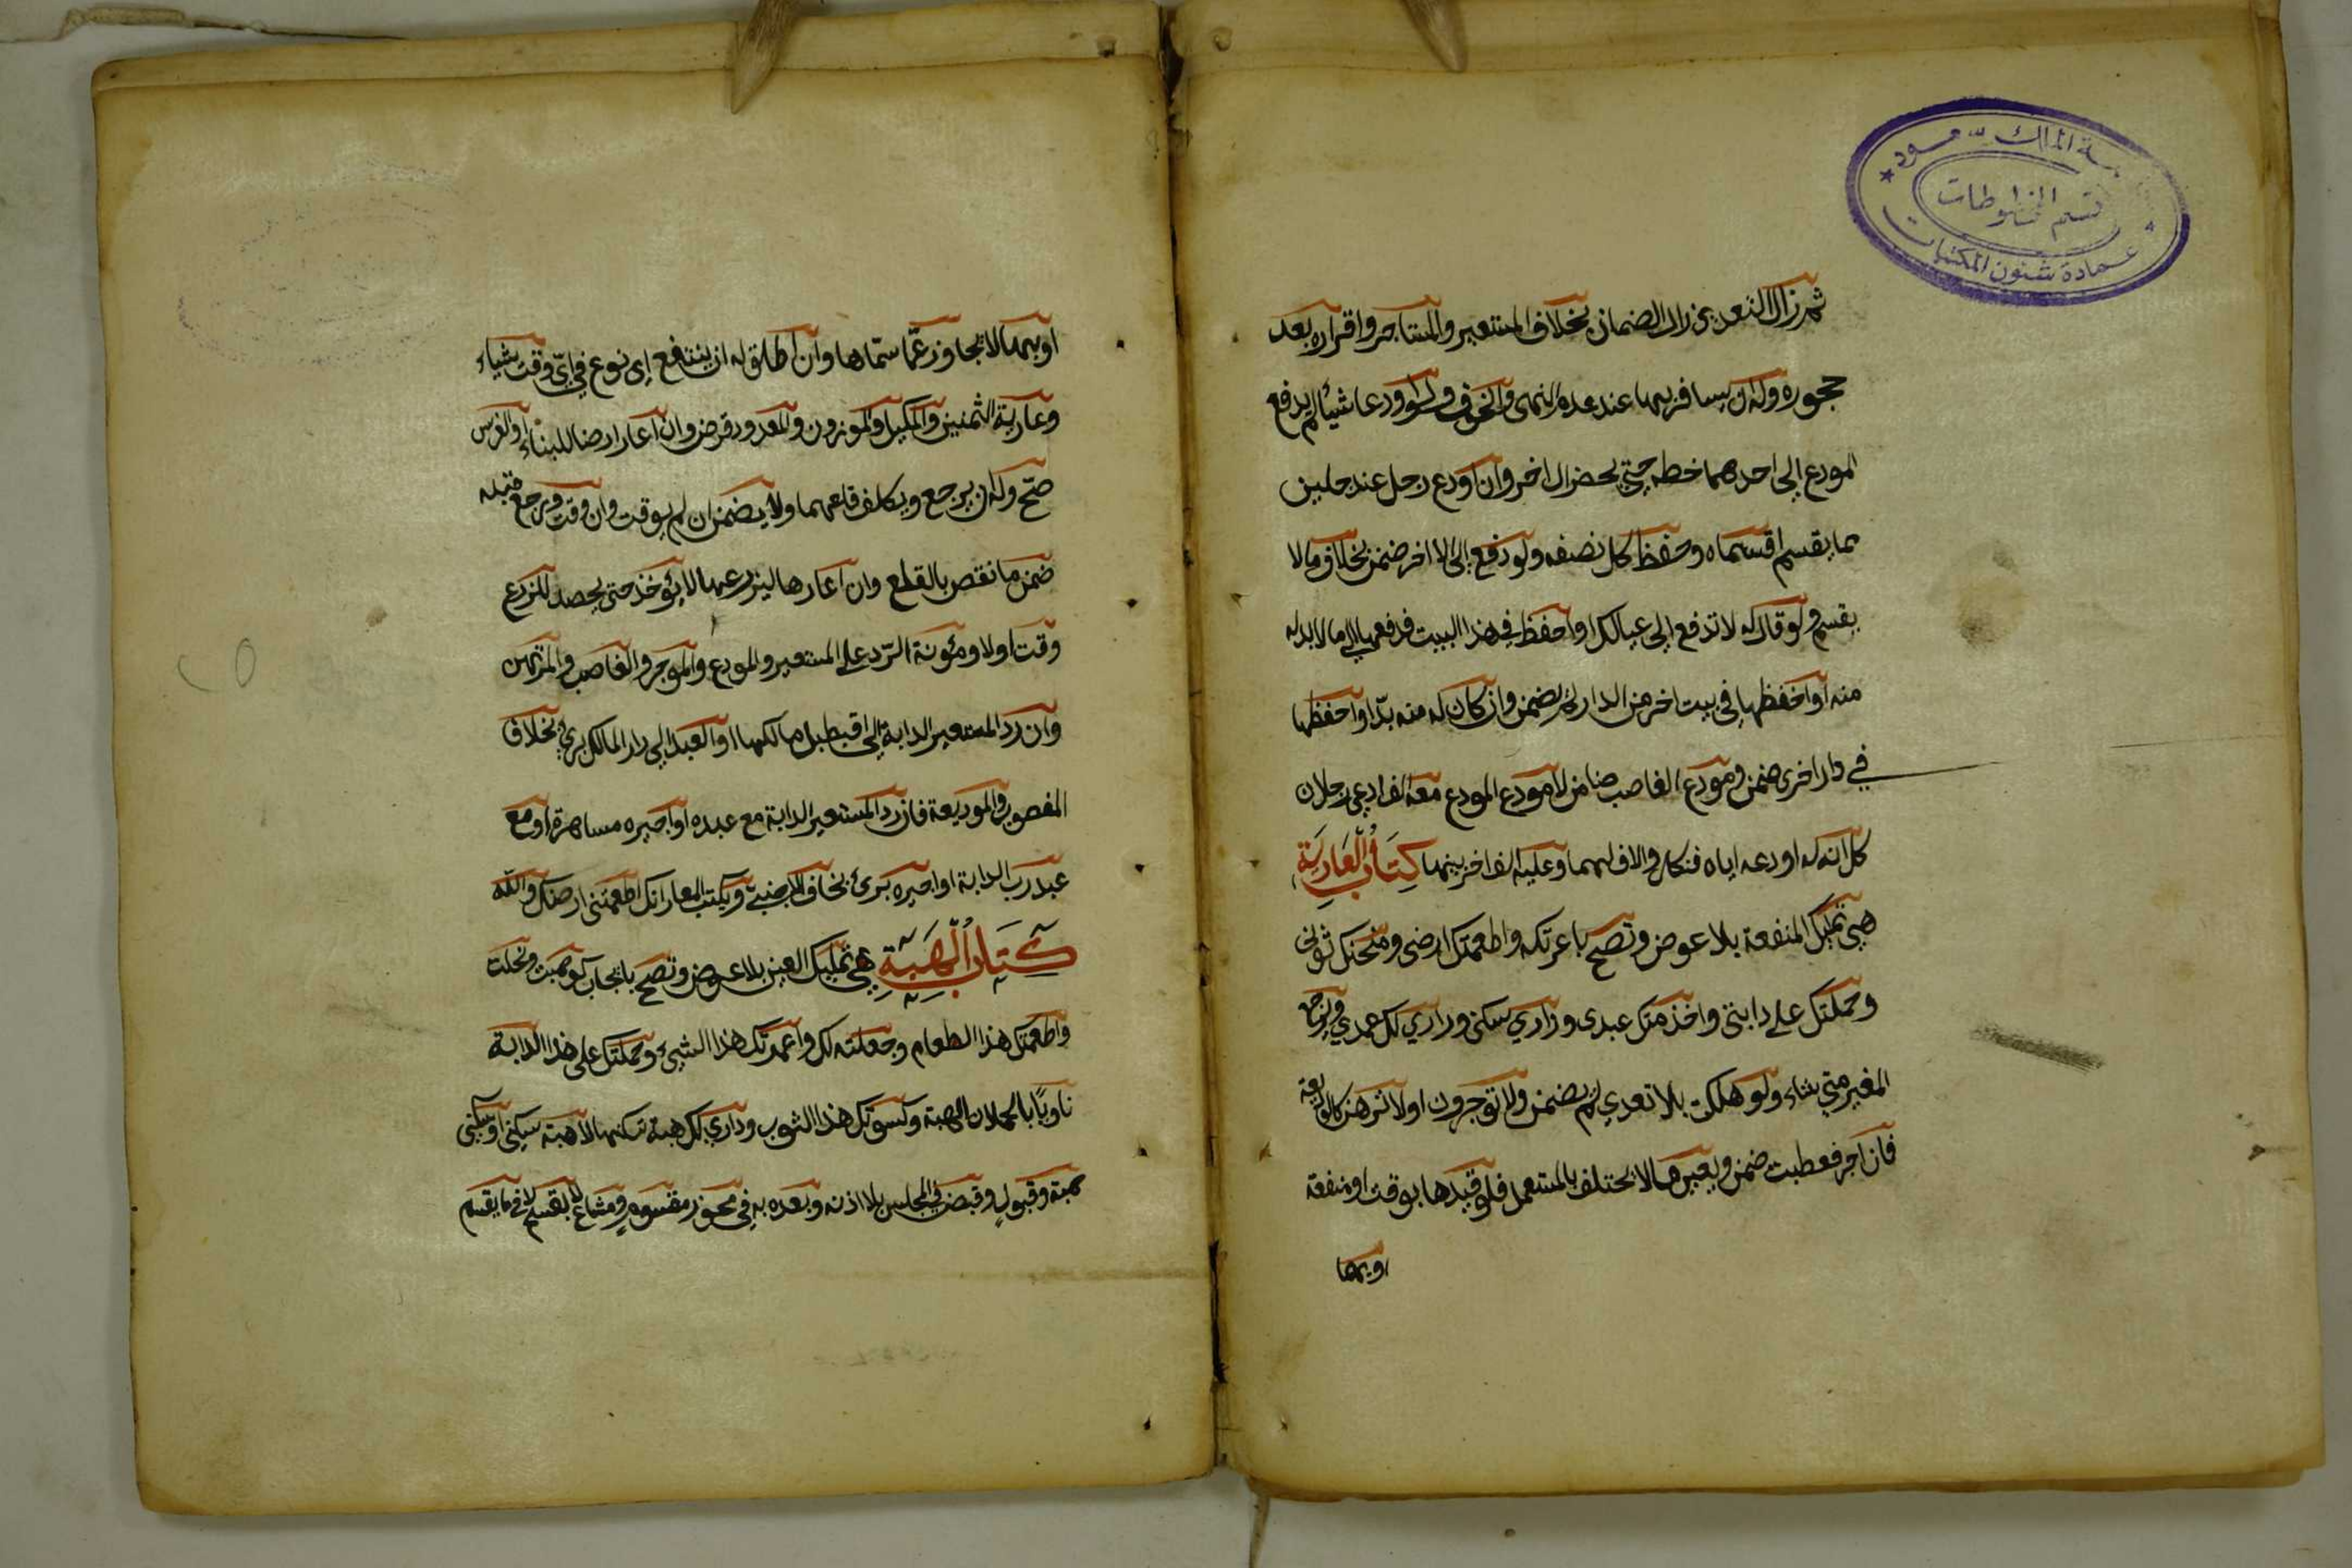 جامعة الملك سعود
قسم المخطوطات
عمادة شئون المكتبات
ثم زال التعدي زال الضمان بخلاف المستعير والمستاجر واقراره بعد
جحوره وله ان يسافر بها عند عدم النهي والخوف ولو اودعا شيئا لم يدفع
المودع الى احدهما خطه حتى يحضر الاخر وان اودع رجل عند جلين
مما يقسم اقتسماه وحفظ كل نصفه ولو دفع الى الاخر ضمن بخلاف مالا
يقسم ولو قال له لا تدفع الى عيالك او احفظ في هذا البيت فدفعها الى مالا بدله
منه او احفظها في بيت اخر من الدار لم يضمن وان كان له منه بدّ او احفظها
في دار اخرى ضمن ومودع الغاصب ضامن لا مودع المودع معه الف ادعى رجلان
كل انه له اودعه اياه فنكل والاف لهما وعليه الف اخر بينهما كتاب العارية
هي تمليك المنفعة بلا عوض وتصح باعرتك واطعمتك ارضى ومنحتك ثوبي
وحملتك على دابتي واخذمتك عبدى وداري سكنى وداري لك عمدي ويرجع
المغير متى شاء ولو هلكت بلا تعدي لم يضمن ولا توجر ولا ترهن كالوديعة
فان اجر فعطبت ضمن ويعير مالا يختلف بالمستعمل فلو قيدها بوقت او منفعة
او بهما
او بهما لا يتجاوز عمّا سمّاها وان اطلق له ان ينتفع اى نوع في ايّ وقت شياء
وعارية الثمنين والمكيل والموزون والمعدود قرض وان اعار ارضا للبناء او الغرس
صحّ وله ان يرجع ويكلف قلعهما ولا يضمن ان لم يوقت وان وقت ورجع قبله
ضمن ما نقص بالقلع وان اعارها ليزرعها لا يؤخذ حتى يحصد الزرع
وقت اولا ومئونة الرّد على المستعير والمودع والموجر والغاصب والمرتهن
وان رد المستعير الدابة الى اقبطبل مالكها او العبد الى دار المالك برئ بخلاف
المغصوب والوديعة فان رد المستعير الدابة مع عبده او اجيره مساهرة او مع
عبد رب الدابة او اجيره برئ بخلاف الاجنبي ويكتب المعار انك اطعمتني ارضك والله
كتاب الهبة هي تمليك العين بلا عوض وتصح بايجاب كوهبت ونحلت
واطعمتك هذا الطعام وجعلته لك واعمرتك هذا الشيئ وحملتك على هذا الدابة
ناويًا بالحملان الهبة وكسوتك هذا الثوب وداري لك هبة تسكنها لا هبة سكنى او سكنى
هبة وقبول وقبض في المجلس بلا اذنه وبعده به في محوز مقسوم ومشاع لا يقسم لا فيما يقسم